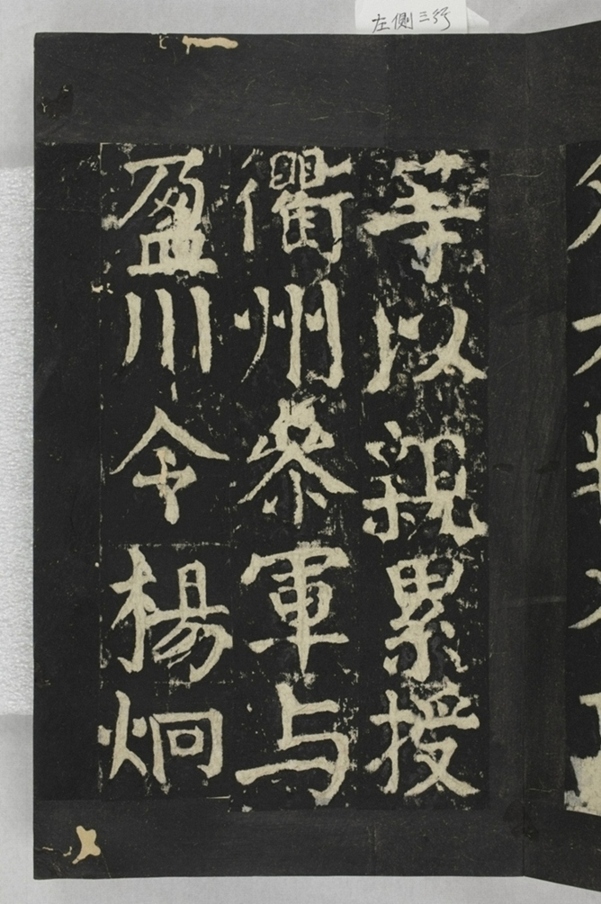 左側三行
等以親累授
衢州参軍与
盈川令楊炯